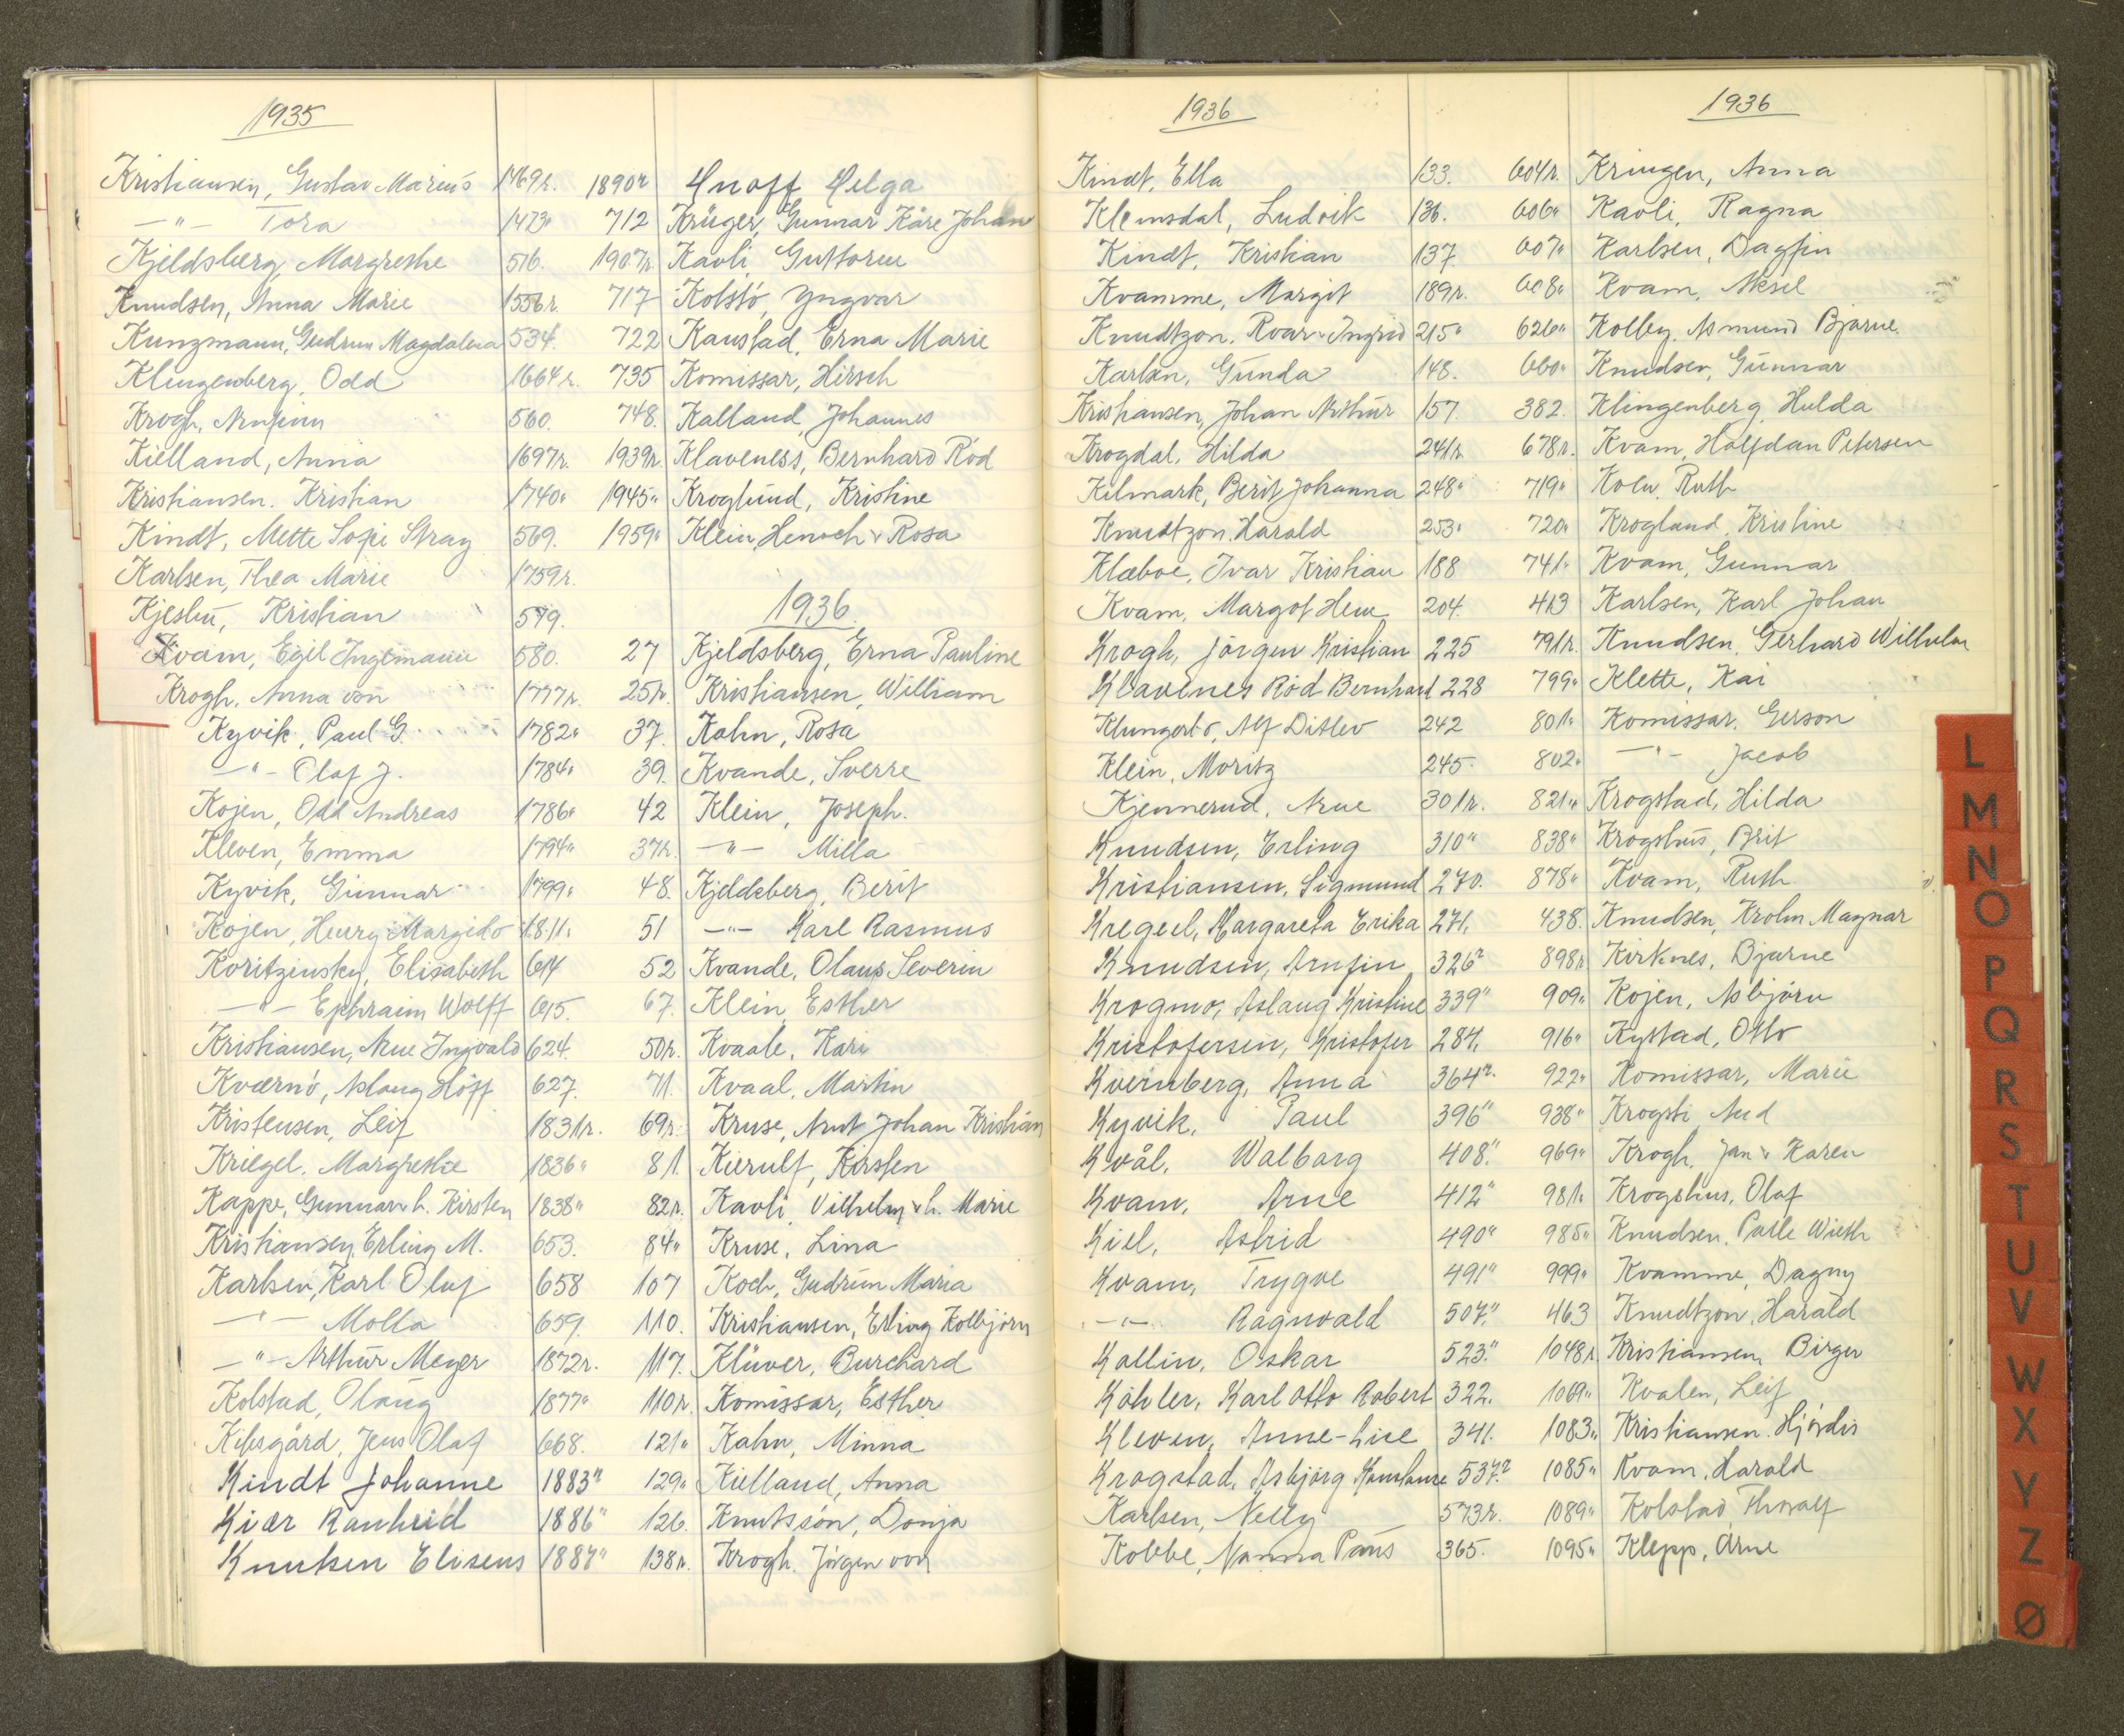 1935
Kristiansen, Gustav Marius 1769r.
—"— Tora 1473"
Kjeldsberg, Margrethe 516.
Knudsen, Anna Marie 1556r.
Kunzmann, Gudrun Magdalena 534.
Klingenberg, Odd 1664r.
Krogh, Arnfinn 560.
Kielland, Anna 1697r.
Kristiansen. Kristian 1740"
Kindt, Mette Sofie Stray 569.
Karlsen, Thea Marie 1759r.
Kjesbu, Kristian 579.
Kvam, Egil Ingemann 580.
Krogh, Anna von 1777r.
Kyvik, Paul G. 1782"
—"— Olaf J. 1784"
Kojen, Odd Andreas 1786"
Kleven, Emma 1794"
Kyvik, Gunnar 1799"
Kojen, Henry Margido 1811"
Koritzinsky, Elisabeth 614
—"— Ephraim Wolff 615.
Kristiansen, Arne Ingvald 624.
Kværnö, Aslaug Höff 627.
Kristensen, Leif 1831r.
Kriegel, Margrethe 1836"
Kappe, Gunnar v h. Kirsten 1838"
Kristiansen, Erling M. 653.
Karlsen, Karl Olaf 658
—"— Molla 659.
—"— Arthur Meyer 1872r.
Kolstad, Olaug 1877"
Kibsgård, Jens Olaf 668.
Kindt Johanne 1883r
Kiær Ranheid 1886"
Knutsen Eliseus 1887"
1890r Knoff Helga
712 Krüger, Gunnar Kåre Johan
1907r. Kavli, Guttorm
717 Kolstö, Yngvar
722 Kaustad, Erna Marie
735 Komissar, Hirsch
748. Kalland, Johannes
1939r. Klaveness, Bernhard Röd
1945" Kroglund, Kristine
1959" Klein, Henoch v Rosa
1936
27 Kjeldsberg, Erna Pauline
25r. Kristiansen, William
37. Kahn, Rosa
39. Kvande, Sverre
42 Klein, Joseph.
37r. —"— Milla
48. Kjeldsberg, Berit
51 —"— Karl Rasmus
52 Kvande, Olaus Severin
67. Klein, Esther
50r. Kvaale, Kari
71. Kvaal, Martin
69r. Kruse, Knut Johan Kristian
81. Kierulf, Kirsten
82r. Kavli Vilhelm v h. Marie
84" Kruse, Lina
107 Koch, Gudrun Maria
110. Kristiansen, Erling Kolbjörn
117. Klüver, Burchard
110r. Komissar, Esther
121" Kahn, Minna
129" Kielland, Anna
126. Knutsson, Donja
138r. Krogh. Jörgen von
1936
Kindt, Ella 133.
Klemsdal, Ludvik 136.
Kindt, Kristian 137.
Kvamme, Margit 189r.
Knudtzon, Roar v Ingrid 215"
Karlsen, Gunda 148.
Kristiansen, Johan Arthur 157.
Krogdal, Hilda 241r.
Kilmark, Berit Johanna 248"
Knudtzon, Harald 253"
Klæboe, Ivar Kristian 188
Kvam, Margot Hem 204.
Krogh, Jörgen Kristian 225
Klavenes Röd Bernhard 228
Klungerbo, Alf Ditlev 242
Klein, Moritz 245.
Kjennerud, Arne 301r.
Knudsen, Erling 310"
Kristiansen, Sigmund 270.
Kregeel, Margareta Erika 271.
Knudsen, Arnfin 326r
Krogmo, Aslaug Kristine 339"
Kristofersen, Kristofer 287.
Kvernberg, Anna 364r.
Kyvik, Paul 396"
Kvål, Walborg 408."
Kvam, Arne 412"
Kiel, Astrid 490"
Kvam, Trygve 491"
—"— Ragnvald 507."
Kollin, Oskar 523."
Köhler, Karl Otto Robert 322.
Kleven, Anne-Lise 341.
Krogstad, Asbjörg Konstanse 537.r
Karlsen, Nelly 573r.
Kobbe, Nanna Paus 365.
1936
604r. Kringen, Anna
606" Kavli, Ragna
607" Karlsen, Dagfin
608" Kvam, Aksel
626" Kolby, Asmund Bjarne.
660" Knudsen, Gunnar
382. Klingenberg Hulda
678r. Kvam, Halfdan Petersen
719" Koen, Ruth
720" Krogland, Kristine
741" Kvam, Gunnar
413 Karlsen, Karl Johan
791r. Knudsen, Gerhard Wilhelm
799" Klette, Kai
801" Komissar, Gerson
802" —"— Jacob
821" Krogstad, Hilda
838" Krogshus, Brit
878" Kvam, Ruth
438. Knudsen, Krohn Magnar
898r Kirknes, Bjarne
909" Kojen, Asbjörn
916" Kystad, Otto
922" Komissar, Marie
938" Krogsti Aud
969" Krogh, Jan v Karen
981" Krogshus, Olaf
985" Knudsen, Palle Wieth
999" Kvamme, Dagny
463 Knudtzon, Harald
1048r Kristiansen, Birger
1069" Kvalen, Leif
1083" Kristiansen. Hjördis
1085" Kvam, Harald
1089" Kolstad, Thoralf
1095" Klepp, Arne
L
M
N
O
P
Q
R
S
T
U
V
W
X
Y
Z
Ø